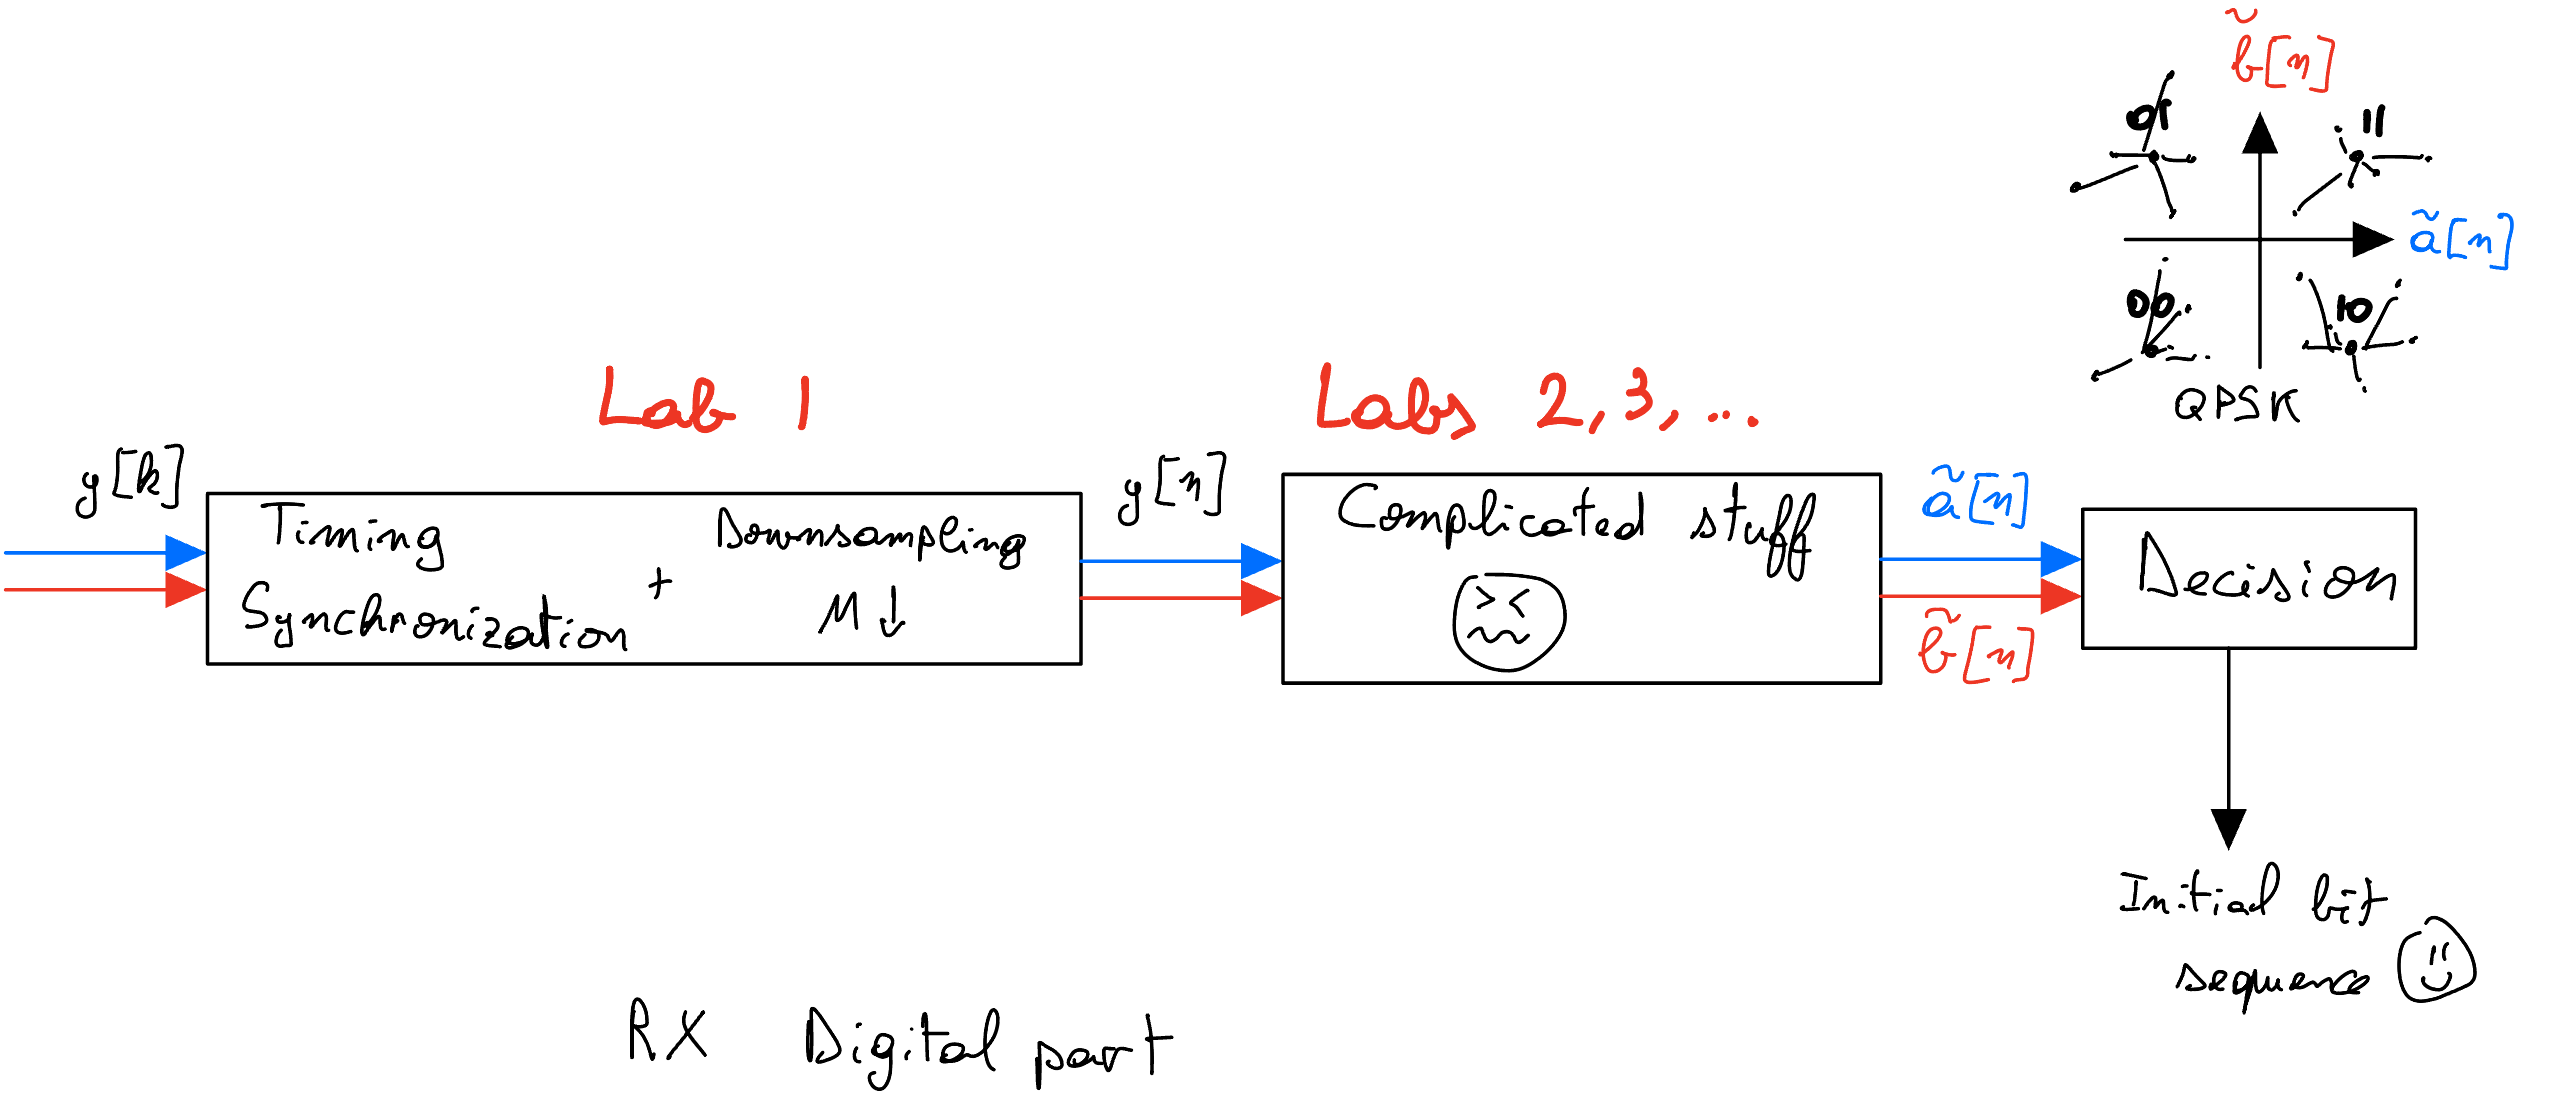 b̃[n]
01
11
ã[n]
00
10
QPSK
Lab 1
Labs 2,3,...
y[k]
Timing Synchronization + Downsampling M↓
y[n]
Complicated stuff
ã[n]
b̃[n]
Decision
Initial bit
sequence
RX Digital part